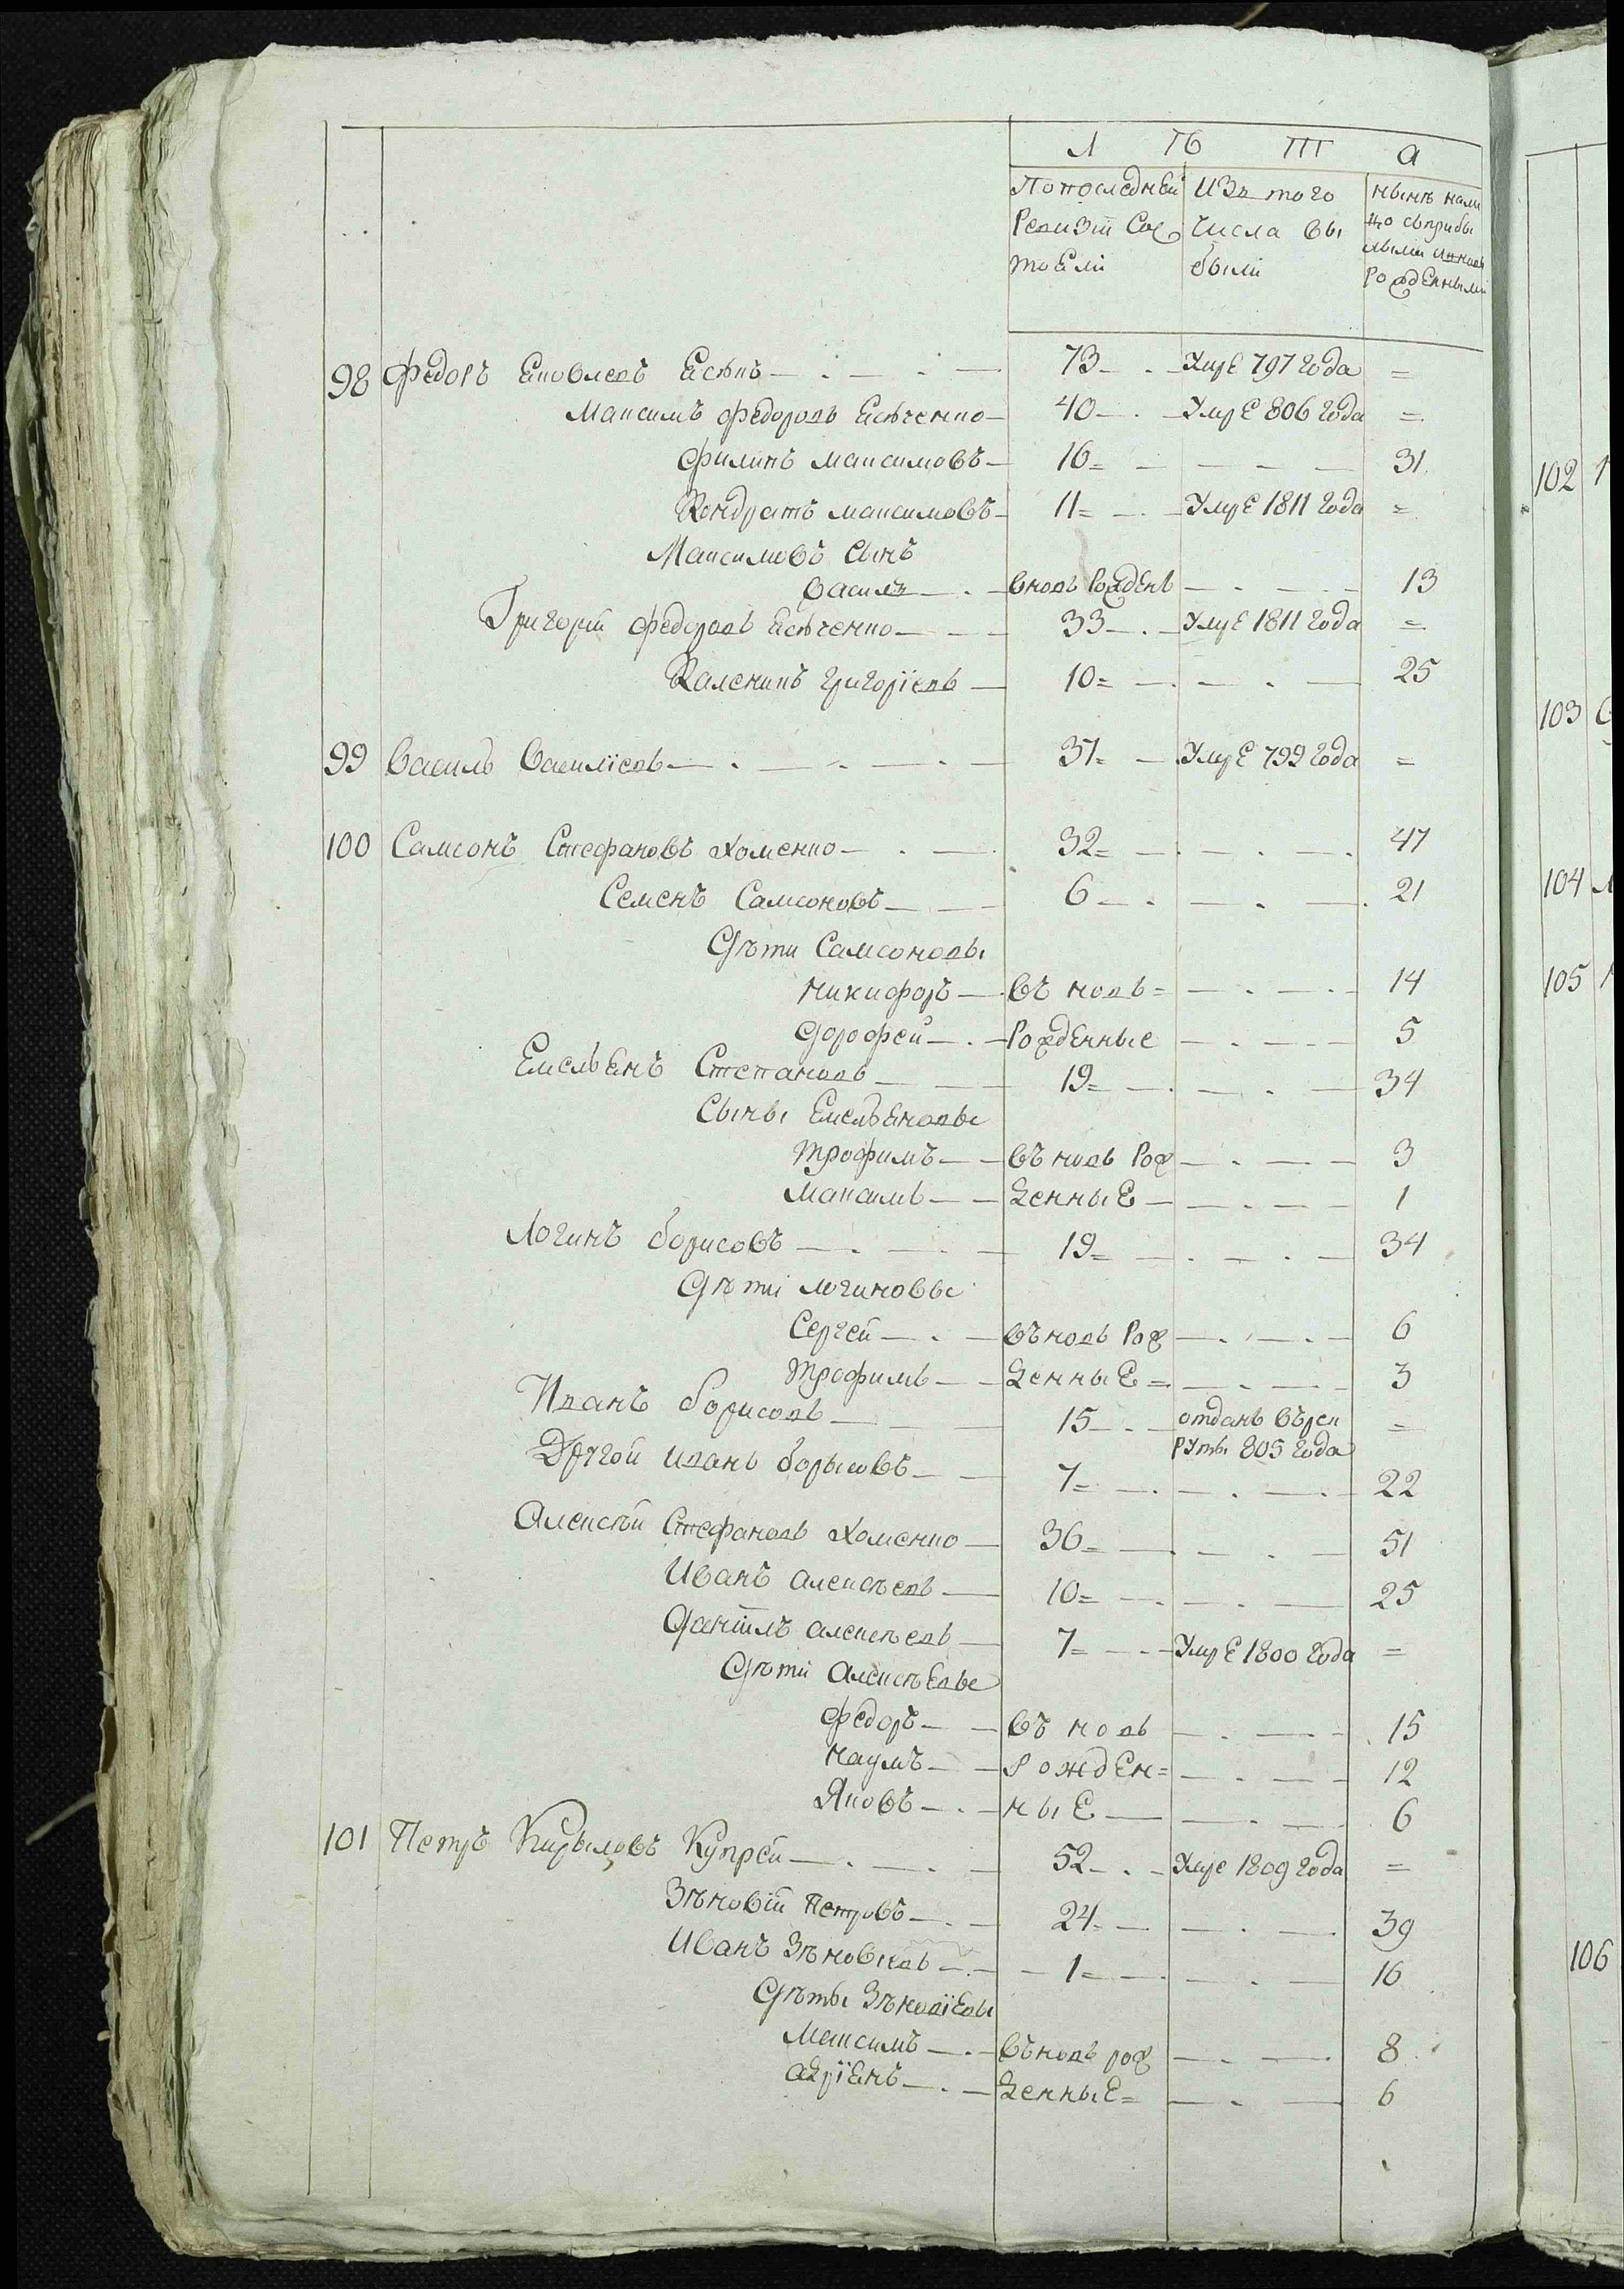 Л Ѣ Т а
Попоследней Ревизіи Состоели
Изъ того Числа Выбыли
нынѣ нали цо съприбы лыми ивновь Рожденными
98 Федоръ Ековлевъ Есѣкъ 73 Умре 797 года =
Максимъ Федоровъ Есѣченко 40 Умре 806 года =
Филипъ Максимовъ 16 = 31
Кондратъ Максимовъ 11 = Умре 1811 года =
Максимовъ Сынъ
Василь вновь Рожденъ 13
Григорій Федоровъ Есѣченко 33 Умре 1811 года =
Каленикъ Григоріевъ 10 = 25
99 Василь Василіевъ 37 = Умре 799 года =
100 Самсонъ Стефановъ Хоменко 32 = 47
Семенъ Самсоновъ 6 21
Дѣти Самсоновы
Никифоръ Въ новь = 14
Дорофей Рожденные 5
Емельенъ Степановъ 19 = 34
Сыны Емельеновы
Трофимъ Въ новь Рож 3
Максимъ денные 1
Логинъ Борисовъ 19 = 34
Дѣти Логиновы
Сергей Въ новь Рож 6
Трофимъ денные = 3
Иванъ Борисовъ 15 отданъ Върек =
руты 805 года
Другой Иванъ Борысовъ 7 = 22
Алексѣй Стефановъ Хоменко 36 = 51
Иванъ Алексѣевъ 10 = 25
Даніилъ Алексѣевъ 7 = Умре 1800 года =
Дѣти Алексѣевы
Федоръ Въ новь 15
Наумъ Рожден= 12
Яковъ ные 6
101 Петръ Кирыловъ Купрѣй 52 Умре 1809 года =
Зѣновій Петровъ 24 = 39
Иванъ Зѣновіевъ 1 = 16
Дѣты Зѣновіевы
Максимъ Въновь рож 8
Адріенъ денные = 6
102
103
104
105
106